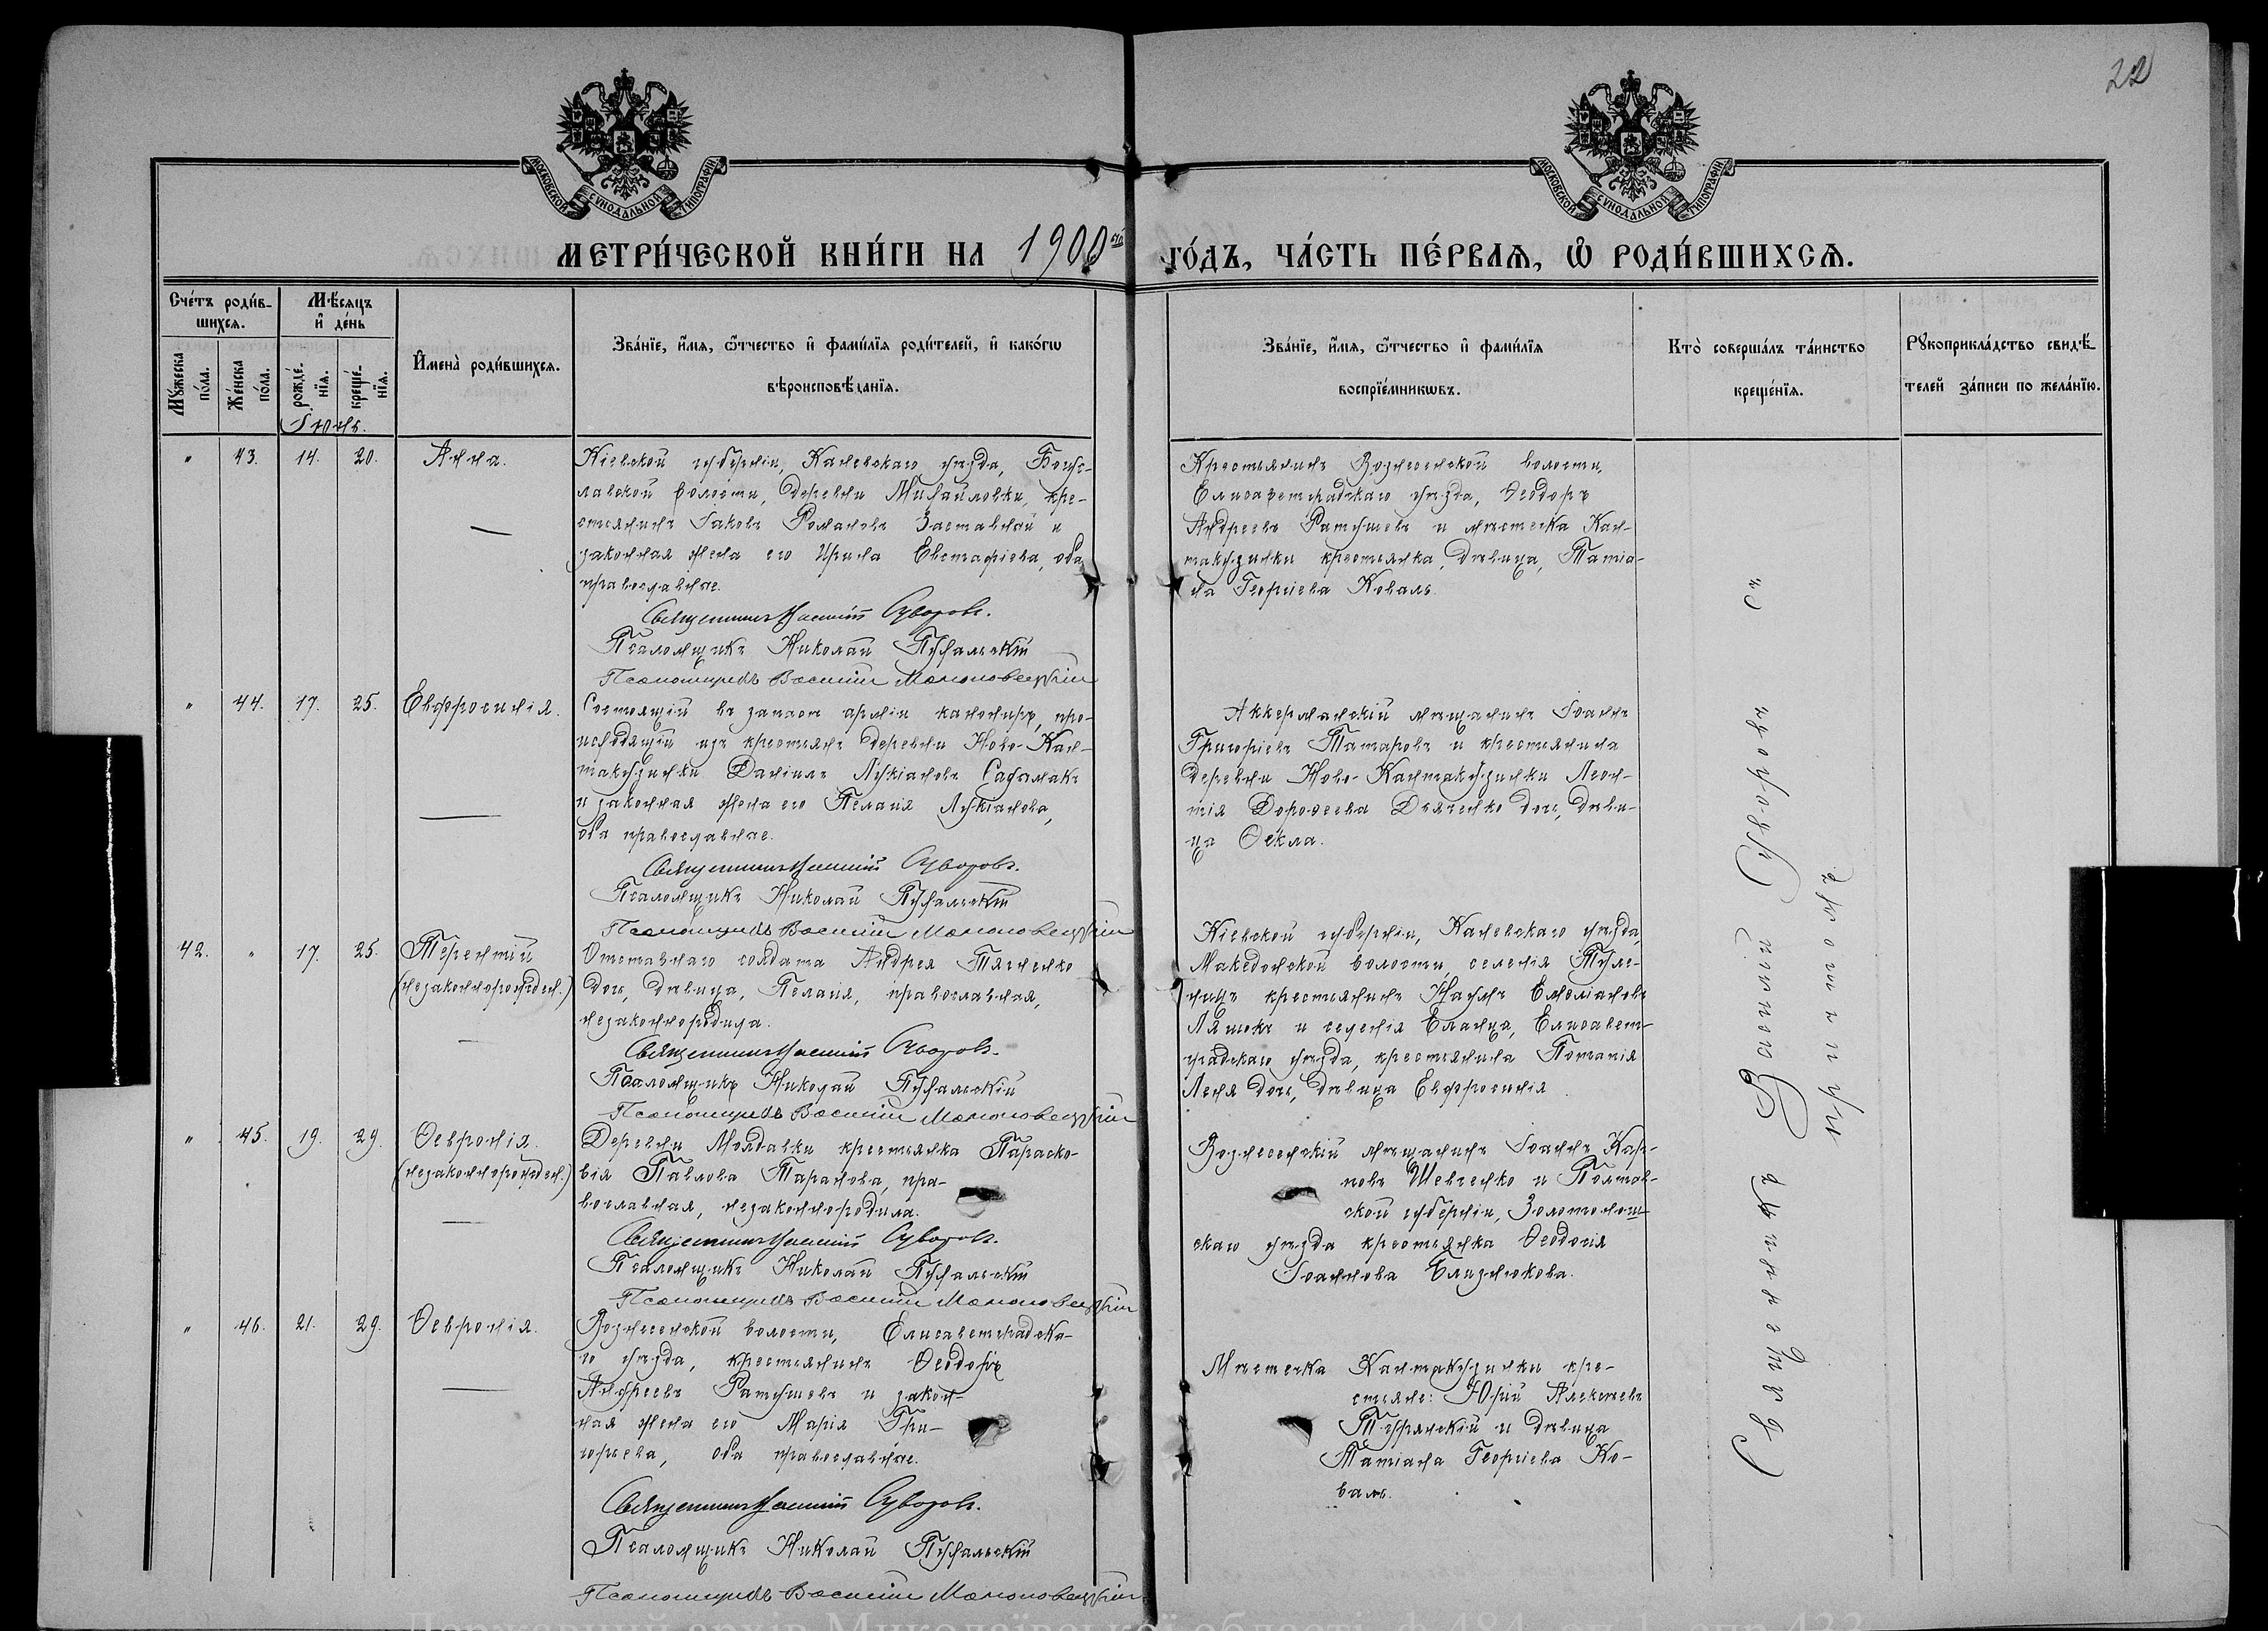 22
МОСКОВСКОЙ СѴНОДАЛЬНОЙ ТИПОГРАФІИ
МОСКОВСКОЙ СѴНОДАЛЬНОЙ ТИПОГРАФІИ
МЕТРИ́ЧЕСКОЙ КНИ́ГИ НА 1900й ГО́ДЪ, ЧА́СТЬ ПЕ́РВАѦ, Ѽ РОДИ́ВШИХСѦ.
Сче́тъ роди́в-
шихсѧ.
Мꙋ́жеска по́ла.
Же́нска по́ла.
Мѣ́сѧцъ
и҆ де́нь
рожде́-
нїѧ.
креще́-
нїѧ.
Іюль.
И҆мена̀ роди́вшихсѧ.
Зва́нїе, и҆́мѧ, ѻ҆́тчество и҆ фами́лїѧ роди́телей, и҆ како́гѡ
вѣроисповѣ́данїѧ.
Зва́нїе, и҆́мѧ, ѻ҆́тчество и҆ фами́лїѧ
воспрїе́мникѡвъ.
Кто̀ соверша́лъ та́инство
креще́нїѧ.
Рꙋкоприкла́дство свидѣ́-
телей за́писи по жела́нїю.
" 43. 14. 20. Анна.
Кіевской губерніи, Каневскаго уѣзда, Богус-
лавской волости, деревни Михайловки, кре-
стьянинъ Іаковъ Романовъ Заставной и
законная жена его Ирина Евстафіева, оба
православные.
Священникъ Суворовъ.
Псаломщикъ Николай Пухальскій
Псаломщикъ Василій
Крестьянинъ Вознесенской волости,
Елисаветградскаго уѣзда, Ѳеодоръ
Андреевъ Ратушевъ и мѣстечка Кан-
такузинки крестьянка, дѣвица, Татіа-
на Георгіева Коваль.
" 44. 17. 25. Евфросинія.
Состоящій въ запасѣ арміи канониръ, про-
исходящій изъ крестьянъ деревни Ново-Кан-
такузинки Даніилъ Лукіановъ
и законная жена его Пелагія Лукіанова,
оба православные.
Священникъ Суворовъ.
Псаломщикъ Николай Пухальскій
Псаломщикъ Василій
Аккерманскій мѣщанинъ Іоаннъ
Григоріевъ Татаровъ и крестьянина
деревни Ново-Кантакузинки Леон-
тія Дороѳеева Дьяченко дочь, дѣви-
ца Ѳекла.
42. " 17. 25. Терентій
(незаконнорожден.)
Отставнаго солдата Андрея Ткаченко
дочь, дѣвица, Пелагія, православная,
незаконнородила.
Священникъ Суворовъ.
Псаломщикъ Николай Пухальскій
Псаломщикъ Василій
Кіевской губерніи, Каневскаго уѣзда,
Македонской волости, селенія Тули-
нецъ крестьянинъ Наумъ Емеліановъ
Ляшокъ и селенія Еланца, Елисавет-
градскаго уѣзда, крестьянина Потапія
дочь, дѣвица Евфросинія.
" 45. 19. 29. Ѳевронія.
(незаконнорожден.)
Деревни Молдавки крестьянка Параске-
вія Павлова Таранова, пра-
вославная, незаконнородила.
Священникъ Суворовъ.
Псаломщикъ Николай Пухальскій
Псаломщикъ Василій
Вознесенскій мѣщанинъ Іоаннъ Кар-
повъ Шевченко и Полтав-
ской губерніи, Золотонош-
скаго уѣзда крестьянка Ѳеодосія
Іоаннова Близнюкова.
" 46. 21. 29. Ѳевронія.
Вознесенской волости, Елисаветградска-
го уѣзда, крестьянинъ Ѳеодоръ
Андреевъ Ратушевъ и закон-
ная жена его Марія Гри-
горьева, оба православные.
Священникъ Суворовъ.
Псаломщикъ Николай Пухальскій
Псаломщикъ Василій
Мѣстечка Кантакузинки кре-
стьяне: Юрій Алексѣевъ
и дѣвица
Татіана Георгіева Ко-
валь.
Священникъ Суворовъ съ
Державний архів Миколаївської області, ф.484, оп.1, спр.433